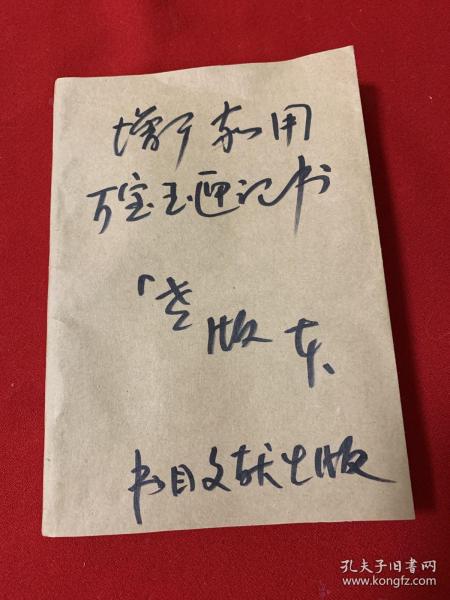 增订家用
万宝玉匣记书
老版本
书目文献出版
孔夫子旧书网
www.kongfz.com